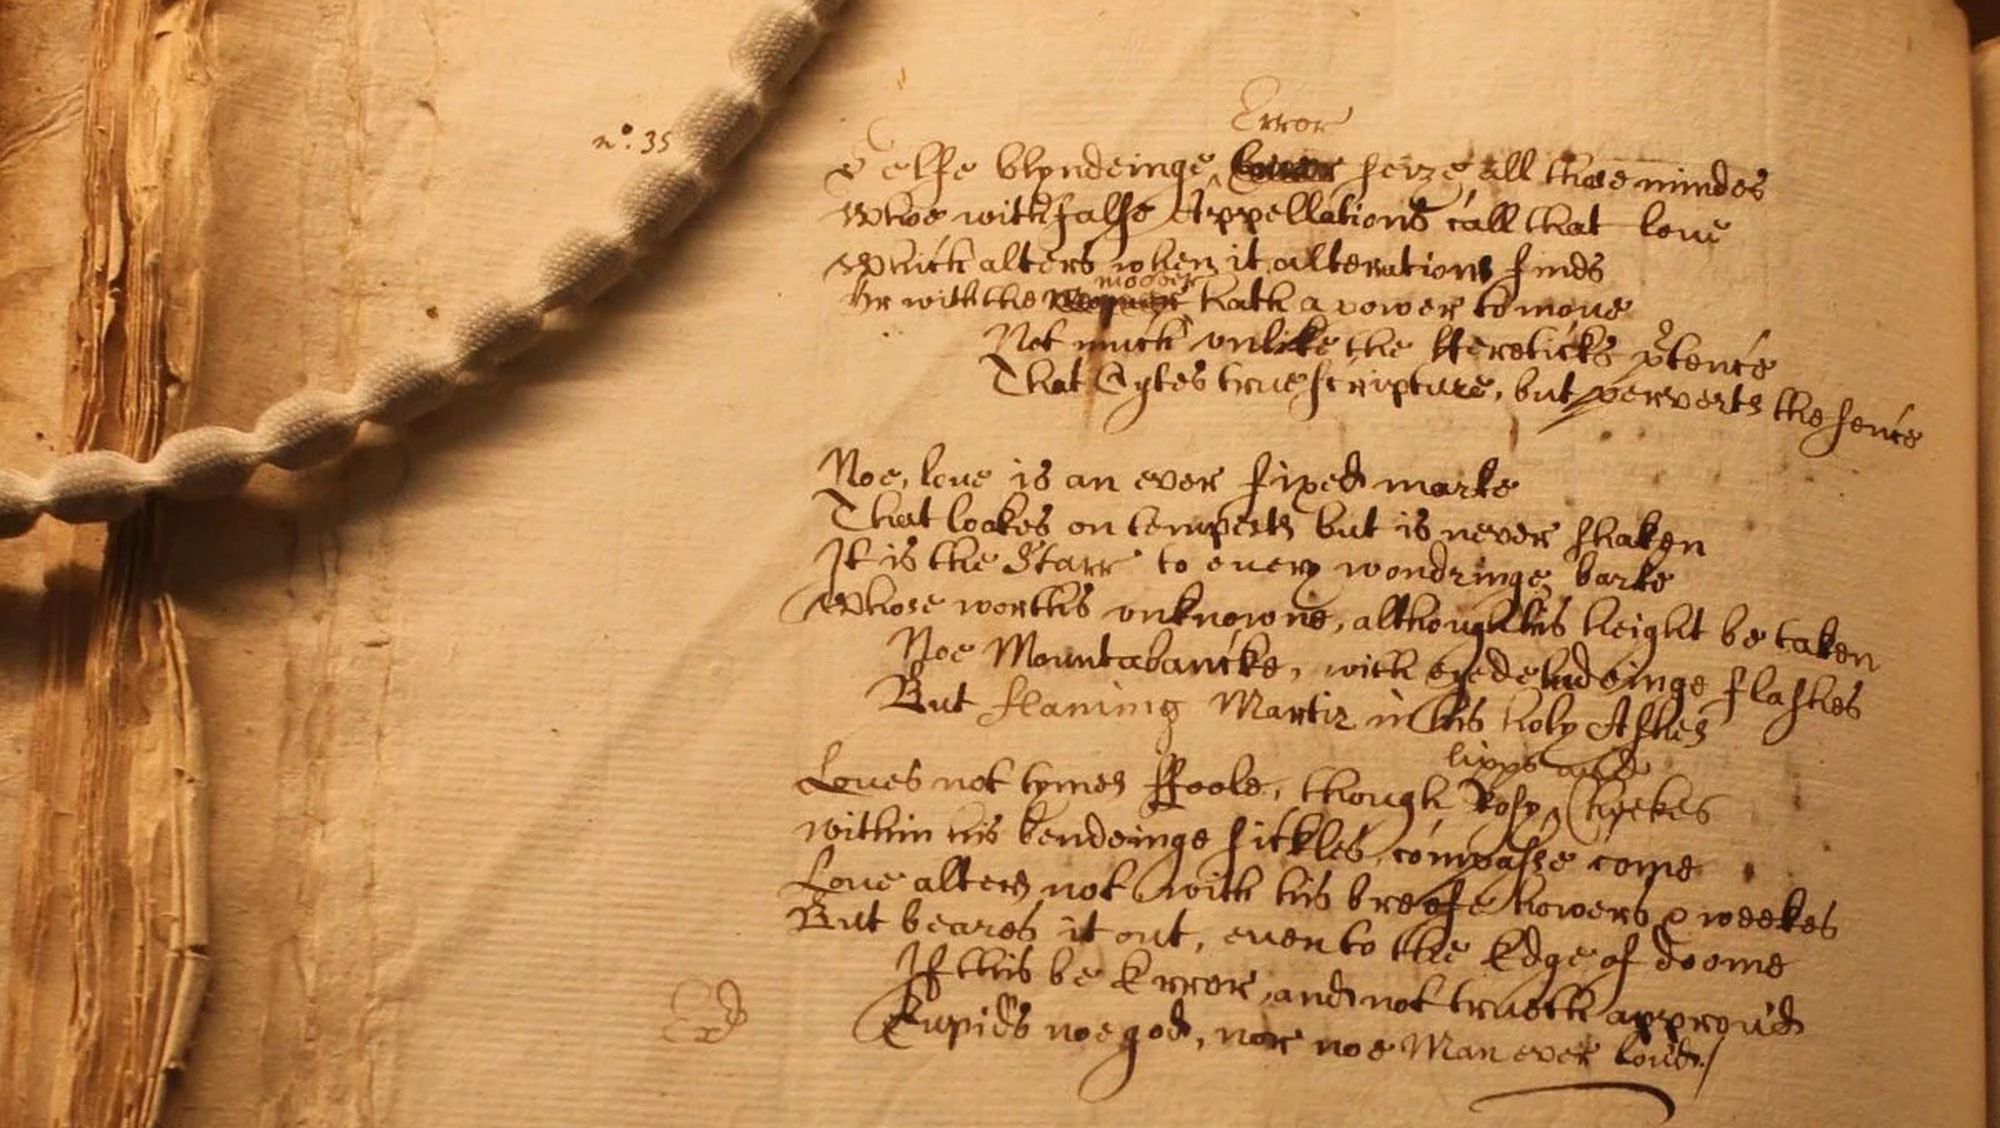 n°. 35
Error
Selfe blyndeinge seize all those mindes
Whoe with false Appellations call that love
Which alters when it alterations finds
moover
Or with the hath a power to move
Not much unlike the Hereticks p̃tence
That Cytes true scripture, but perverts the sence
Noe, love is an ever fixed marke
That lookes on tempests but is never shaken
It is the Starr to every wondringe barke
Whose worths unknowne, although his height be taken
Noe Mountabancke, with eyedeludeinge flashes
But flaming Martir in his holy Ashes
lipps and
Loves not tymes ffoole, though Rosy ^ Cheekes
within his bendeinge sickles compasse come
Love alters not with his breefe howers & weekes
But beares it out, even to the Edge of doome
If this be Error, and not trueth approv'd
Cupids noe god, nor noe Man ever lov'd./